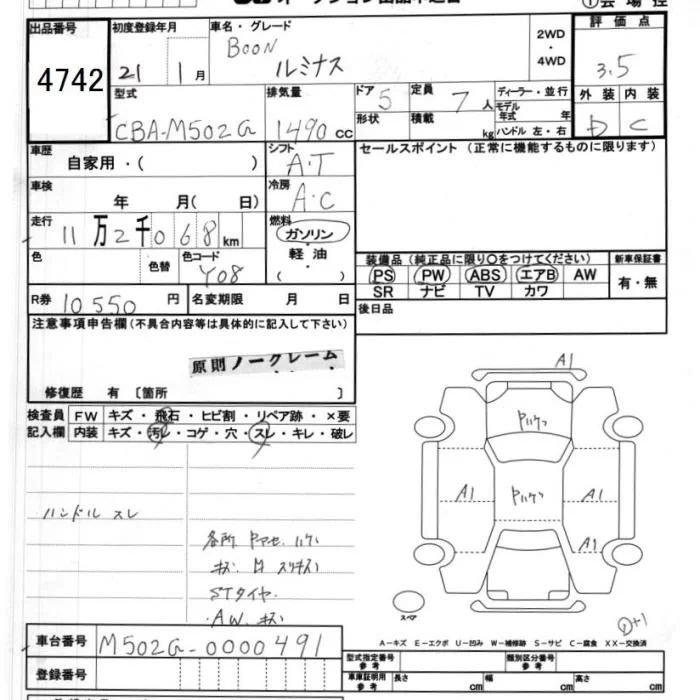 出品番号
4742
初度登録年月
21 1月
車名・グレード
BOON
ルミナス
2WD
・
4WD
評価点
3.5
型式
CBA-M502G
排気量
1490 cc
ドア
5
定員
7人
ディーラー・並行
モデル年式 年
形状
積載
kg
ハンドル 左・右
外装
内装
D
C
車歴
自家用・( )
シフト
A・T
セールスポイント (正常に機能するものに限ります)
車検
年 月( 日)
冷房
A・C
走行
11万2千068km
燃料
ガソリン
軽油
( )
色
色替
色コード
Y08
装備品 (純正品に限り○をつけてください)
新車保証書
PS PW ABS エアB AW
SR ナビ TV カワ
有・無
R券 10550円
名変期限 月 日
後日品
注意事項申告欄(不具合内容等は具体的に記入して下さい)
原則ノークレーム
修復歴 有 〔箇所 〕
検査員
記入欄
FW キズ・飛石・ヒビ割・リペア跡・×要
内装 キズ・汚レ・コゲ・穴・スレ・キレ・破レ
ハンドル スレ
各所 ヤマセ ハゲ
STタイヤ
A.W. キズ
A1
A1
A1
A1
スペア
A-キズ E-エクボ U-凹み W-補修跡 S-サビ C-腐食 XX-交換済
車台番号
M502G-0000491
登録番号
型式指定番号
参考
類別区分番号
参考
車庫証明用
参考
長さ cm
幅 cm
高さ cm